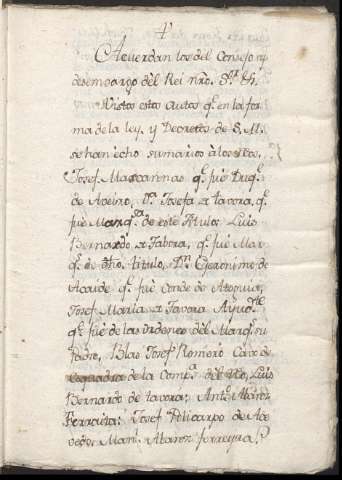 Acuerdan los del Consejo y
desembargo dèl Rei nro. Sr. &a.
Vistos estos autos q.e en la for
ma de la ley, y Decretos de S. M.
se han echo sumarios à los reos,
Josef Mascarenas q.e fuè Duq.e
de Aveiro, D.a Josefa a tavora, q.e
fuè Marq.sa de este titulo: Luis
Bernardo a Tabora, q.e fuè Mar
q.s de dho. titulo, D.n Geronimo de
Ataide q.e fuè Conde de Atouguia,
Josef Maria a Tavora Ayud.te
q.e fuè de las ordenes dèl Marq.s su
Padre, Blas Josef Romero Cavo de
Esquadra de la Comp.a del Reo, Luis
Bernardo de tavora; Ant.o Alvarez
Ferreira; Josef Policarpo de Ace
vedo, Man.l Alvarez ferreyra,